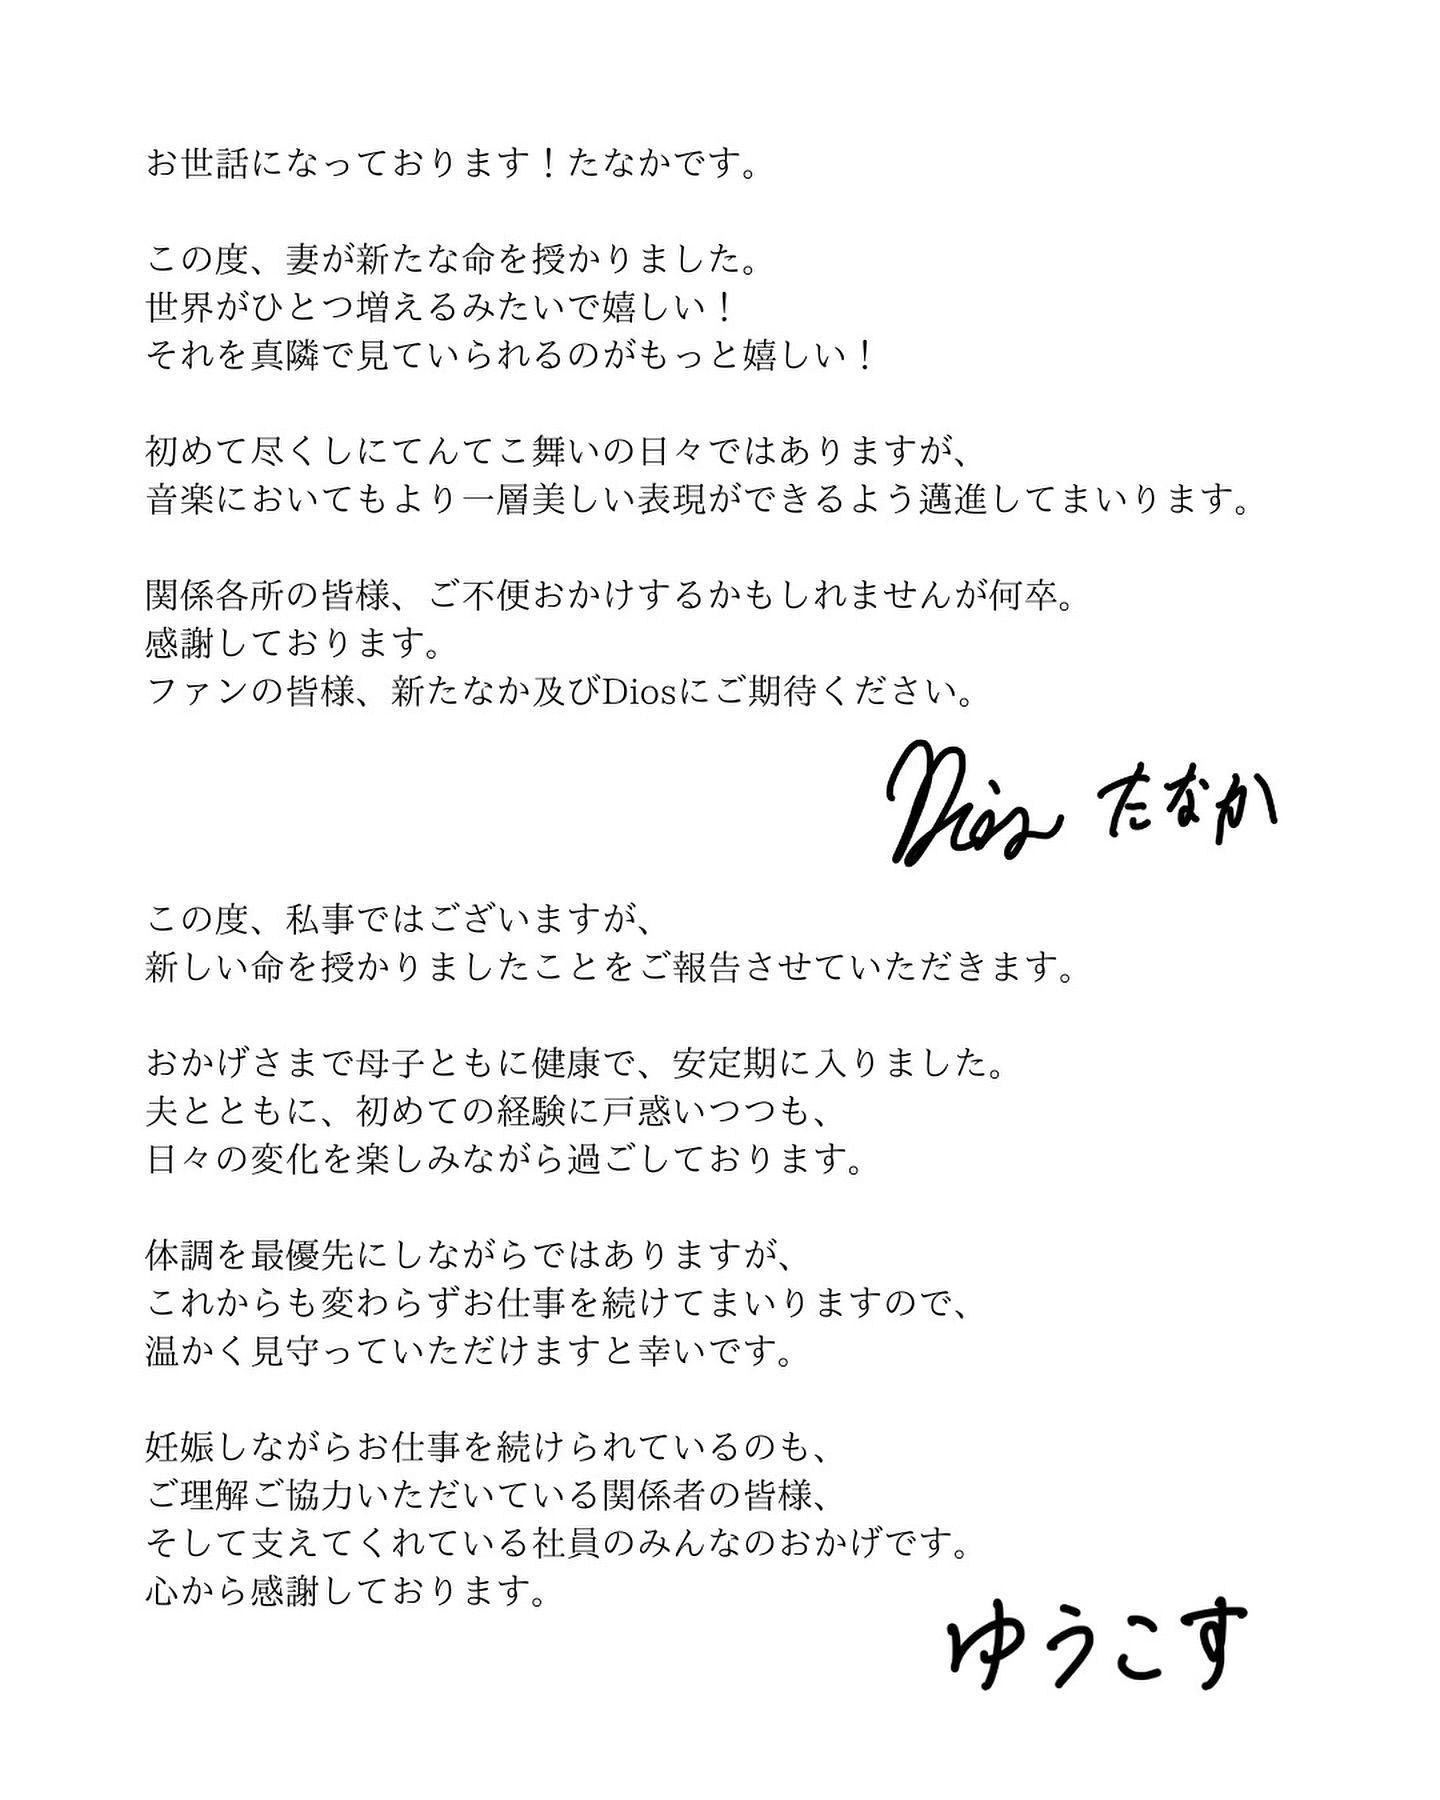 お世話になっております！たなかです。
この度、妻が新たな命を授かりました。
世界がひとつ増えるみたいで嬉しい！
それを真隣で見ていられるのがもっと嬉しい！
初めて尽くしにてんてこ舞いの日々ではありますが、
音楽においてもより一層美しい表現ができるよう邁進してまいります。
関係各所の皆様、ご不便おかけするかもしれませんが何卒。
感謝しております。
ファンの皆様、新たなか及びDiosにご期待ください。
Dios たなか
この度、私事ではございますが、
新しい命を授かりましたことをご報告させていただきます。
おかげさまで母子ともに健康で、安定期に入りました。
夫とともに、初めての経験に戸惑いつつも、
日々の変化を楽しみながら過ごしております。
体調を最優先にしながらではありますが、
これからも変わらずお仕事を続けてまいりますので、
温かく見守っていただけますと幸いです。
妊娠しながらお仕事を続けられているのも、
ご理解ご協力いただいている関係者の皆様、
そして支えてくれている社員のみんなのおかげです。
心から感謝しております。
ゆうこす